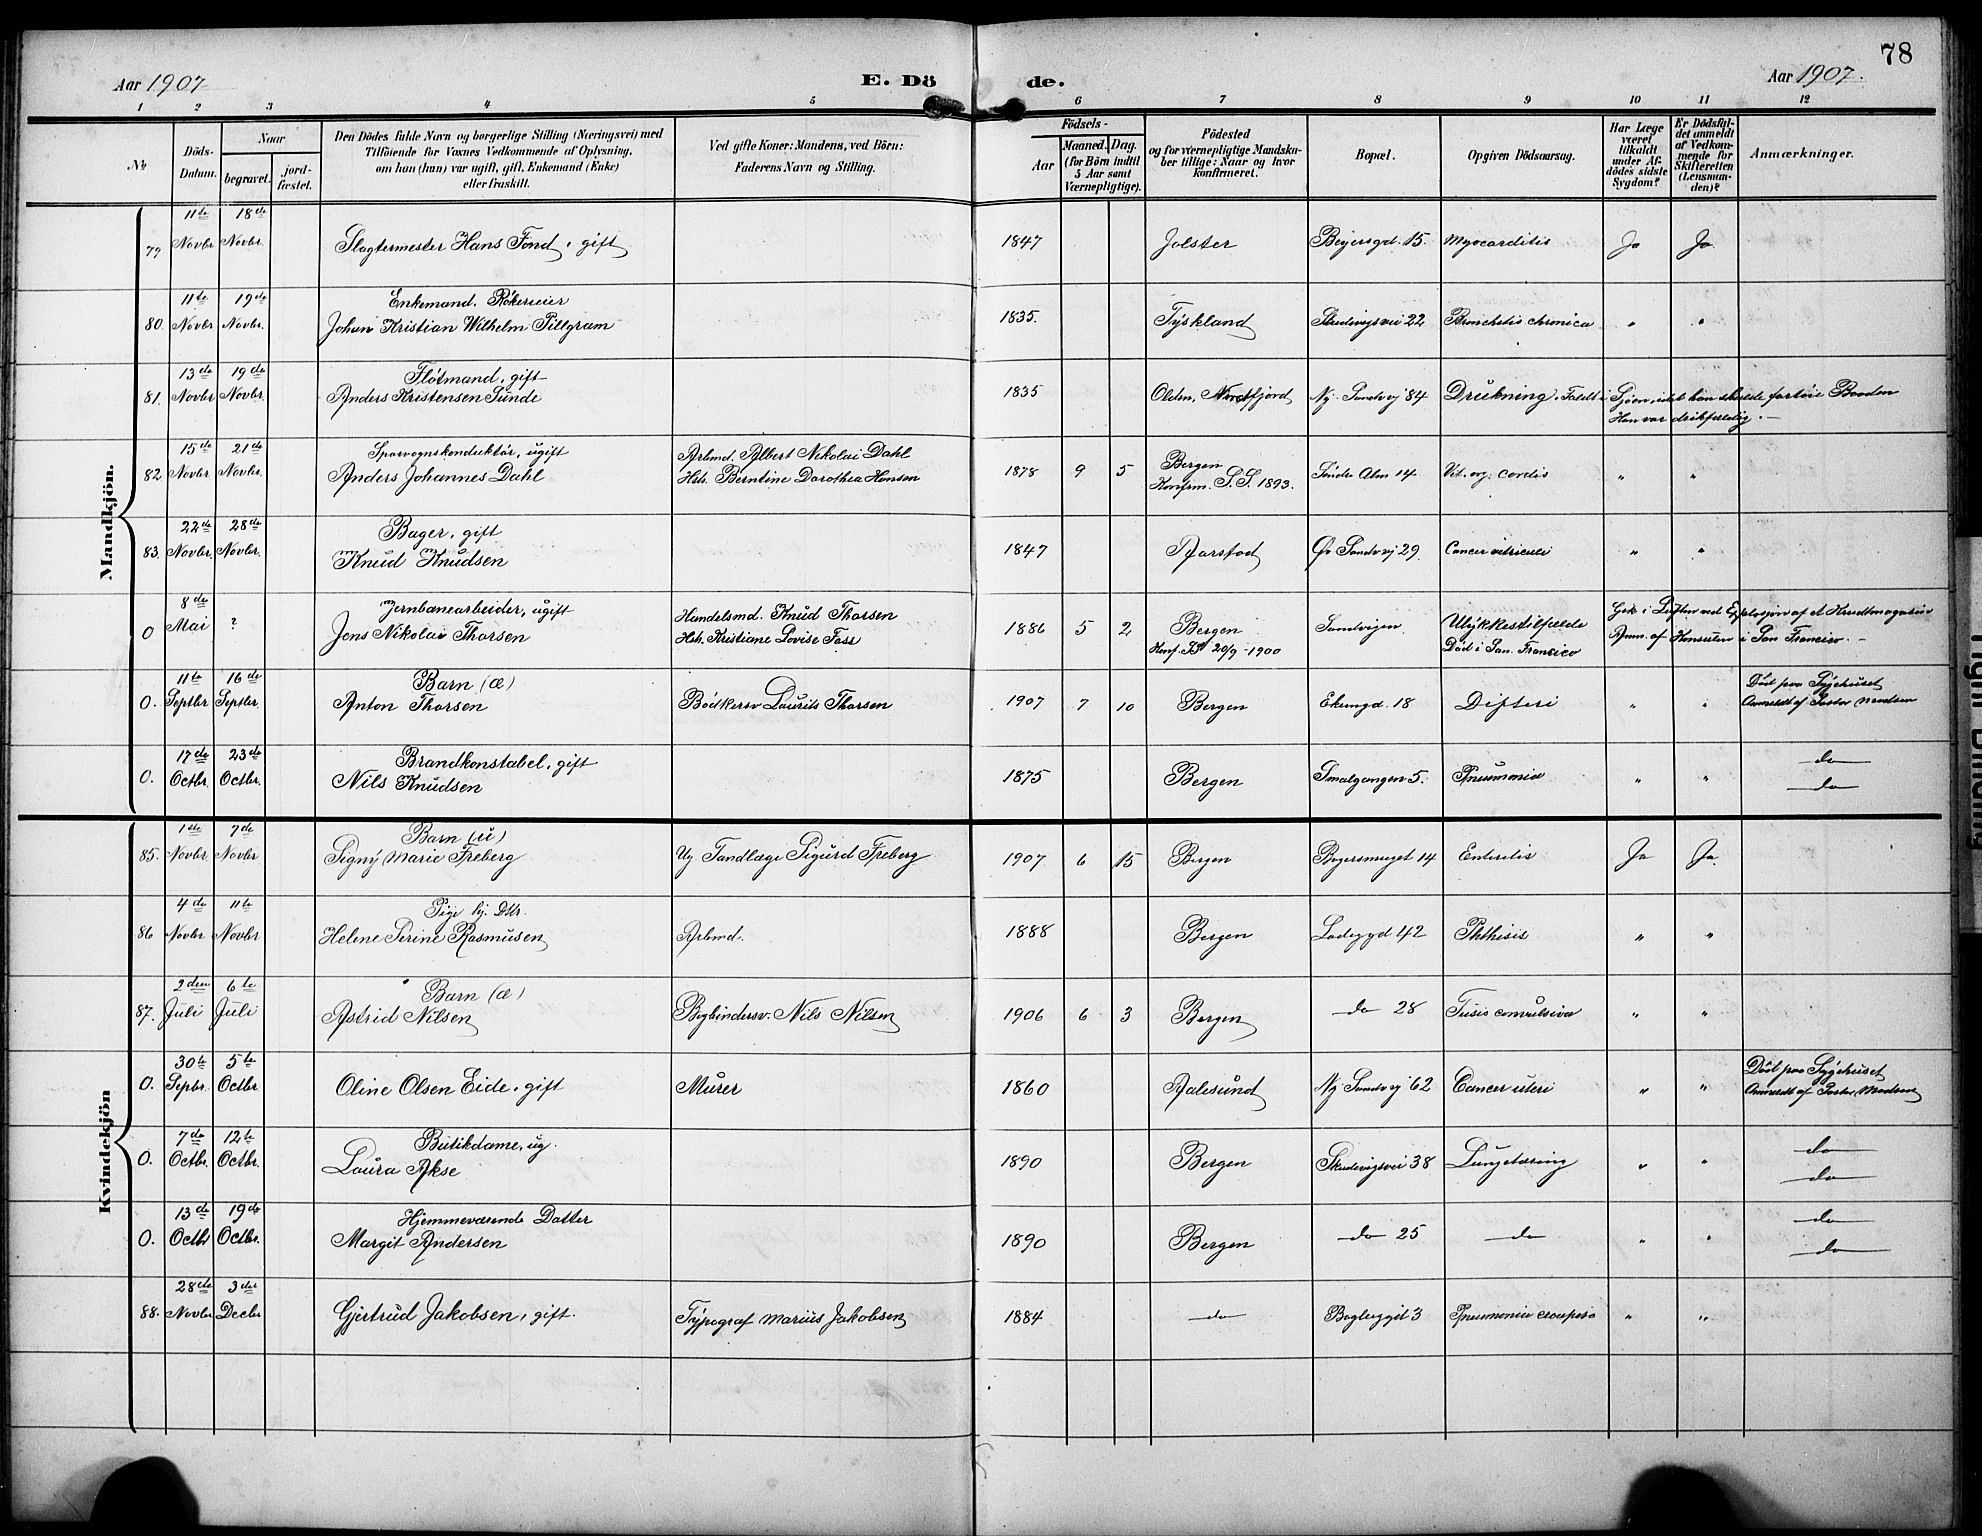 78
Aar 1907
E. Dö de.
Aar 1907.
1 2 3 4 5 6 7 8 9 10 11 12
No
Döds-Datum.
Naar
begravet.
jord-fæstet.
Den Dödes fulde Navn og borgerlige Stilling (Næringsvei) med
Tilföiende for Voxnes Vedkommende af Oplysning,
om han (hun) var ugift, gift, Enkemand (Enke)
eller fraskilt.
Ved gifte Koner: Mandens, ved Börn:
Faderens Navn og Stilling.
Födsels-
Aar
Maaned. Dag.
(for Börn indtil
5 Aar samt
Værnepligtige).
Födested
og for værnepligtige Mandska-
ber tillige: Naar og hvor
Konfirmeret.
Bopæl.
Opgiven Dödsaarsag.
Har Læge
været
tilkaldt
under Af-
dödes sidste
Sygdom?
Er Dödsfal-
det anmeldt
af Vedkom-
mende for
Skifteretten
(Lensman-
den)?
Anmærkninger.
Mandkjön.
79 11te Novbr 18de Novbr. Slagtermester Hans Fond, gift 1847 Jolster Beyersgd. 15. Myocarditis Ja Ja.
80. 11te Novbr 19de Novbr. Enkemand.
Johan Kristian Wilhelm Pillgram 1835. Tyskland Skudevigsvei 22 Bronchitis chronica " "
81. 13de Novbr 19de Novbr. Flötmand, gift
Anders Kristensen Sunde 1835 Olden, Nordfjord Ny. Sandvj 84 Drukning. Faldt i Sjöen, idet han skulde fortöie Baaden
Han var drikfældig. -
82 15de Novbr 21de Novbr Sporvognskonduktör, ugift
Anders Johannes Dahl Arbmd. Albert Nikolai Dahl
Hst. Berntine Dorothea Hansen 1878 9 5 Bergen
Konfirm. S. S. 1893. Söndre Alm 14 Vit. org. cordis " "
83. 22de Novbr. 28de Novbr. Bager, gift
Knud Knudsen 1847 Aarstad Öv Sandvj 29. Cancer vitriculi " "
0 8de Mai ? Jernbanearbeider, ugift
Jens Nikolai Thorsen Handelsmd. Knud Thorsen
Hst. Kristiane Lovise Foss 1886 5 2 Bergen
Konf. 20/9 - 1900 Sandvigen. Ulykkestilfælde
Död i San. Francisco Gik i Luften ved Explosjon af et Krudtmagasin
Anm. af Konsulen i San Francisco. -
0. 11te Septbr 16de Septbr Barn (æ)
Anton Thorsen Bödkersv Laurits Thorsen 1907 7 10 Bergen Ekregd. 18 Difteri " " Död paa Sygehuset
Anmeldt af Pastor Madsen
0. 17de Octbr. 23de Octbr. Brandkonstabel, gift
Nils Knudsen 1875 Bergen Smalgangen 5. Pneumonia " " do
do
Kvindekjön
85. 1ste Novbr 7de Novbr Barn (u)
Signy Marie Freberg Ug Tandlæge Sigurd Freberg 1907 6 15 Bergen 14 Enteritis Ja Ja.
86 4de Novbr 11te Novbr Pige hj. Dttr.
Helene Serine Rasmusen Arbmd. 1888 Bergen Ladeggd 42 Phthisis " "
87. 2den Juli 6te Juli Barn (æ)
Astrid Nilsen Bogbindersv. Nils Nilsen 1906 6 3 Bergen do 28 Tusis convulsiva " "
0. 30te Sepbr. 5te Octbr Oline Olsen Eide, gift Murer 1860 Aalesund Ny Sandvj 62 Cancer uteri " " Död paa Sygehuset
Anmeldt af Pastor Madsen
0. 7de Octbr. 12te Octbr. Butikdame, ug.
Laura Akse 1890 Bergen Skudevigsvei 38 Lungetæring " " do
do
0. 13de Octbr 19de Octbr. Hjemmeværende Datter
Margit Andersen 1890 Bergen do 25 do " " do
do
88. 28de Novbr 3die Decbr Gjertrud Jakobsen, gift. Typograf Marius Jakobsen 1884 do 3 Pneumonia crouposa " "